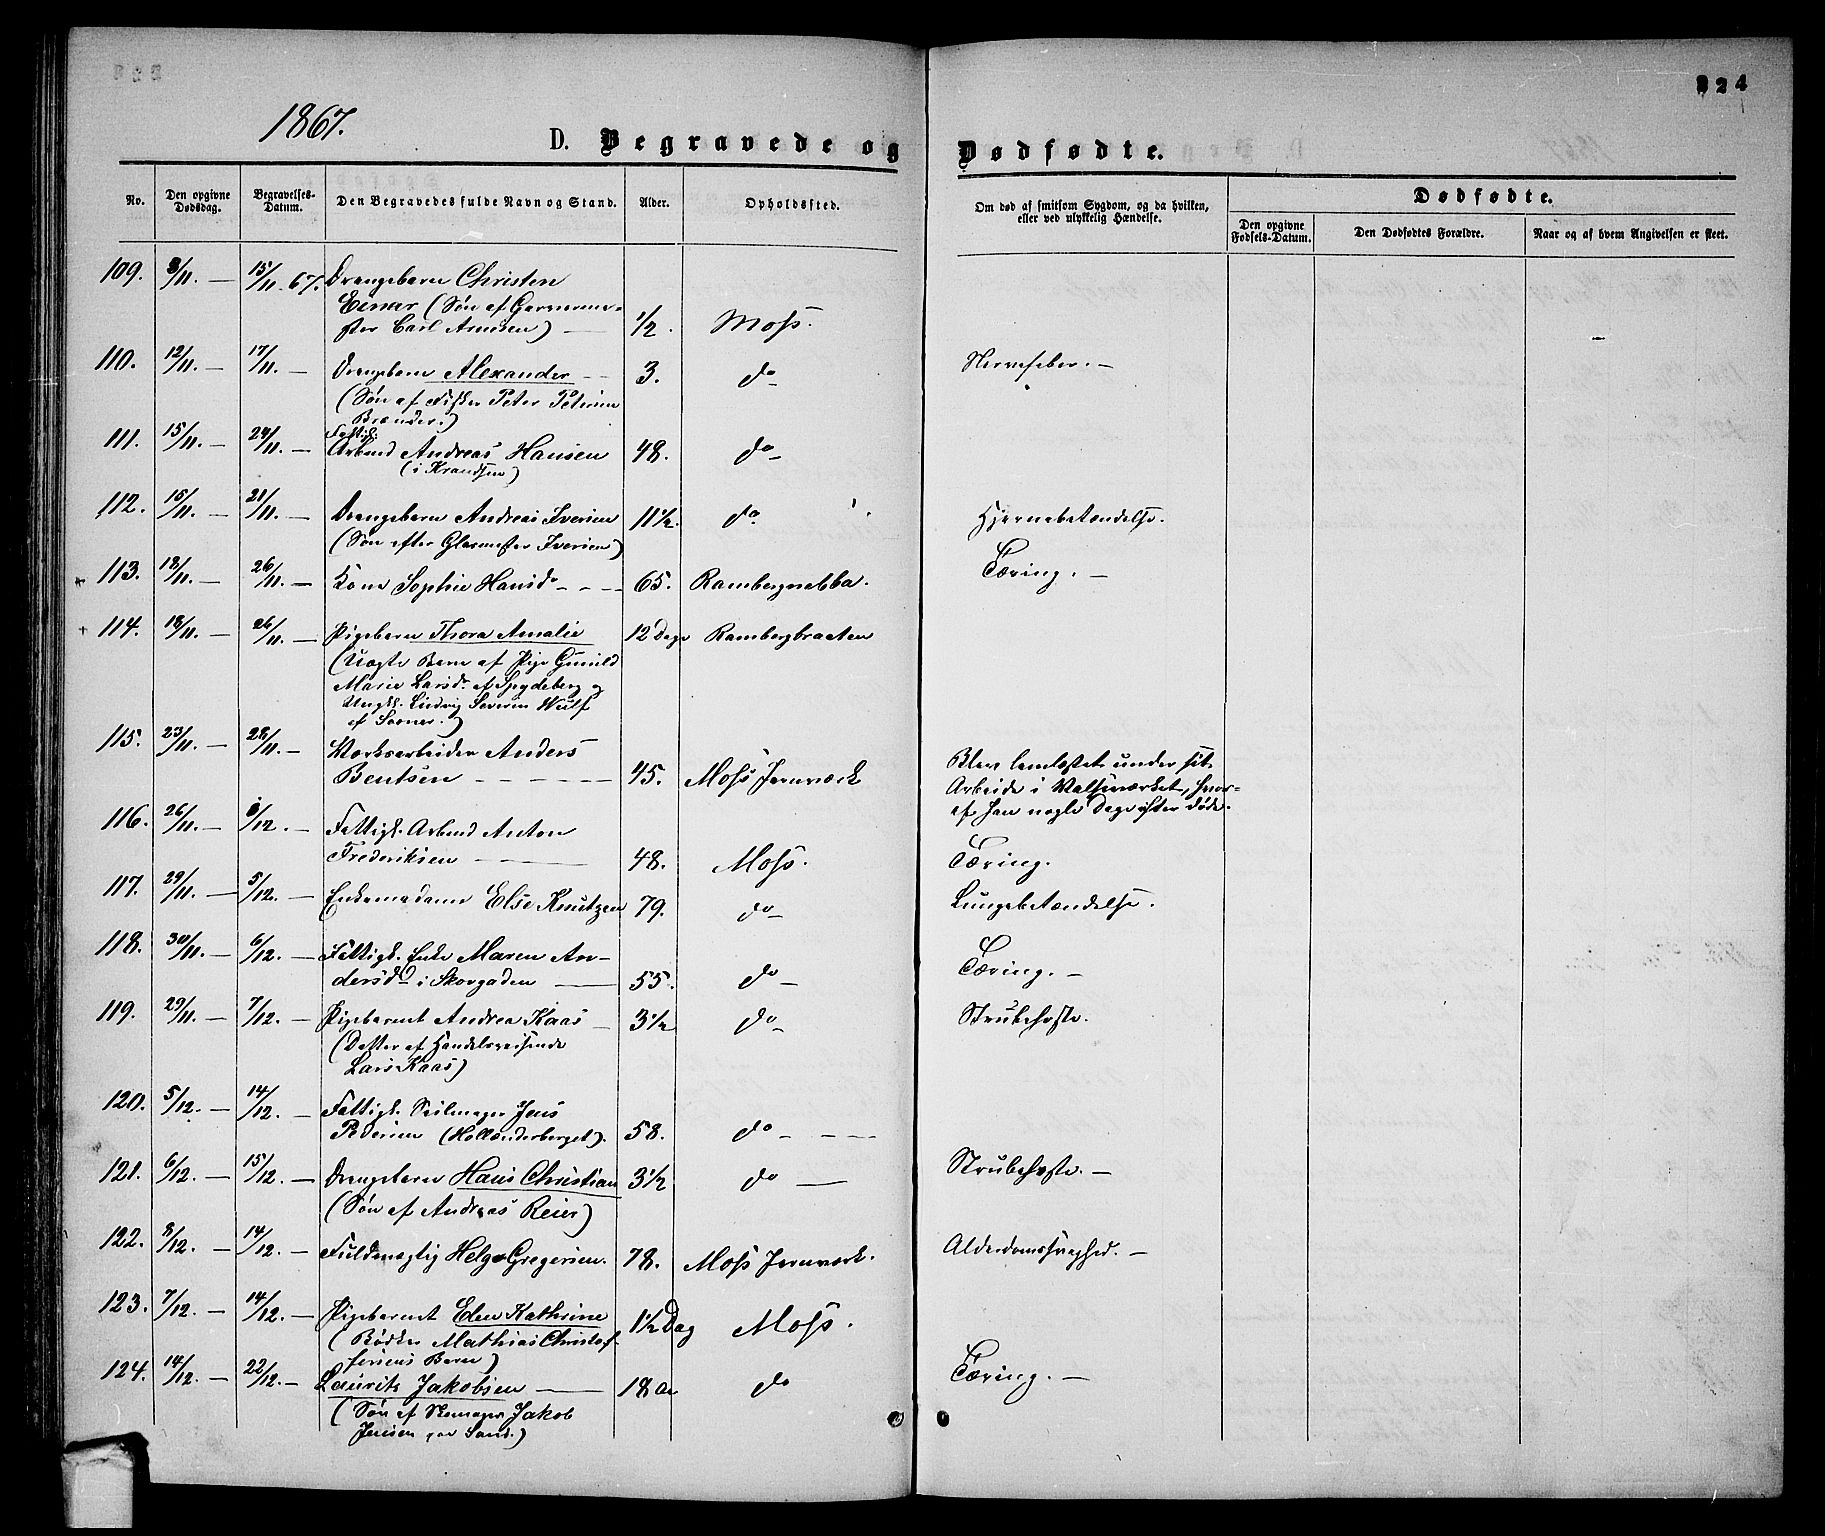 324
1867.
D. Begravede og Dødfødte.
No.
Den opgivne Dødsdag.
Begravelses-Datum.
Den Begravedes fulde Navn og Stand.
Alder.
Opholdssted.
Om død af smitsom Sygdom, og da hvilken, eller ved ulykkelig Hændelse.
Dødfødte.
Den opgivne Fødsels-Datum.
Den Dødfødtes Forældre.
Naar og af hvem Angivelsen er skeet.
109. 8/11. — 15/11. 67. Drengebarn Christen
Einar (Søn af Garverme-
ster Carl Arnesen) — 1/2. Moss.
110. 12/11. — 17/11. Drengebarn Alexander — 3. do Nervefeber. —
(Søn af Fisker Peter Petersen
Brænder.)
111. 15/11. — 24/11. — Fattigl.
Arbmd Andreas Hansen 48. do —
(i Krandsen)
112. 15/11. — 21/11. — Drengebarn Andreas Iversen 11 1/2. do. Hjernebetændelse.
(Søn efter Glasmester Iversen)
+ 113. 18/11. — 26/11. — Kone Sophie Hansdr - - - 65. Rambergnabba. Tæring. —
+ 114. 18/11. — 26/11. — Pigebarn Thora Amalie 12 Dage Rambergbraaten
(Uægte Barn af Pige Gunild
Marie Larsdr. af Spydeberg og
Ungk. Ludvig Severin Wulf
af Soner.)
115. 23/11. — 28/11. — Værksarbeider Anders
Bentsen - - - - 45. Moss Jernværk
Blev lemlæstet under sit
Arbeide i Valseværket, hvor-
af han nogle Dage efter døde.
116. 26/11. — 1/12. — Fattigl. Arbmd Anton
Frederiksen — 48. Moss. Tæring.
117. 29/11. — 5/12. — Enkemadam Else Knutzen 79. do — Lungebetændelse.
118. 30/11. — 6/12. — Fattigl. Enke Maren An-
dersdr i Skovgaden — 55. do — Tæring. —
119. 29/11. — 7/12. — Pigebarnet Andrea Kaas — 3 1/2 do — Strubehoste.
(Datter af Handelsreisende
Lars Kaas)
120. 5/12. — 14/12. — Fattigl. Seilmager Jens
Pedersen (Hollænderberget). 58. do - - -
121. 6/12. — 15/12. — Drengebarn Hans Christian 3 1/2 do — Strubehoste. —
(Søn af Andreas Reier)
122. 8/12. — 14/12. — Fuldmægtig Helge Gregersen. 78. Moss Jernværk. Alderdomssvaghed. —
123. 7/12. — 14/12. — Pigebarnet Elen Kathrine 1 1/2 Dag Moss.
(Bødker Mathias Christof-
fersens Barn)
124. 14/12. — 22/12. — Laurits Jakobsen — 18 Aar do Tæring. —
(Søn af Skomager Jakob
Jensen paa Sand.)